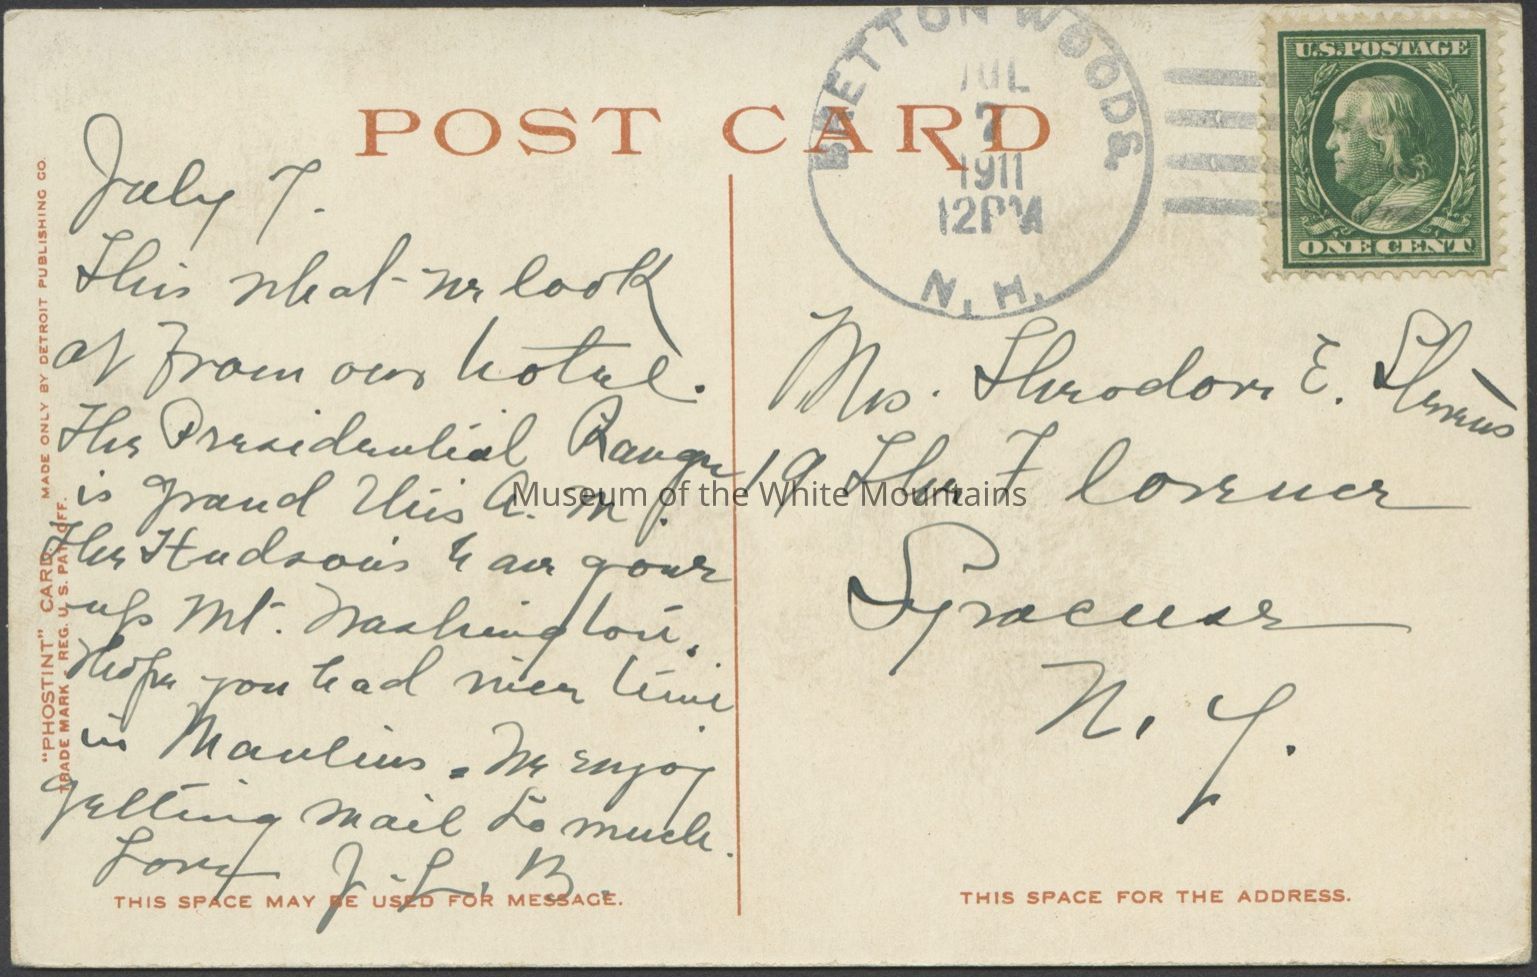 POST CARD
BRETTON WOODS.
JUL
7
1911
12PM
N. H.
U.S. POSTAGE
ONE CENT
July 7.
This what we look
at from our hotel.
The Presidential Range
is grand this A. M.
The Hudsons have gone
up Mt. Washington.
Hope you had nice time
in Manlius. We enjoy
getting mail so much.
Love J. L. B.
Mrs. Theodore E. Stevens
19 The Florence
Syracuse
N. Y.
"PHOSTINT" CARD. MADE ONLY BY DETROIT PUBLISHING CO.
TRADE MARK REG. U. S. PAT. OFF.
THIS SPACE MAY BE USED FOR MESSAGE.
THIS SPACE FOR THE ADDRESS.
Museum of the White Mountains